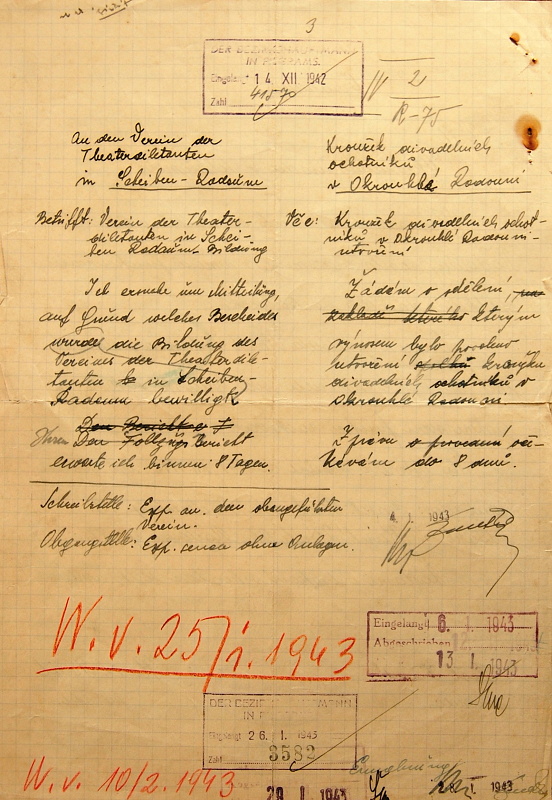 3
DER BEZIRKSHAUPTMANN
IN PILGRAMS.
Eingelangt 14 XII 1942
Zahl 41570
IV 2
R-75
An den Verein der
Theaterdiletanten
in Scheiben-Radaum
Betrifft: Verein der Theater-
diletanten in Schei-
ben Radaum Bildung
Ich ersuche um Mitteilung,
auf Grund welches Bescheides
wurde die Bildung des
Vereins der Theaterdile-
tanten in Scheiben-
Radaum bewilligt.
Ihren Bericht
erwarte ich binnen 8 Tagen.
Kroužek divadelních
ochotníků
v Okrouhlé Radouni
Věc: Kroužek divadelních ochot-
níků v Okrouhlé Radouni-
utvoření
Žádám o sdělení,
kterým
výnosem bylo povoleno
utvoření kroužku
divadelních ochotníků v
Okrouhlé Radouni
Zprávu o provedení oče-
kávám do 8 dnů.
Schreibstelle: Exp. an den obangeführten
Verein.
Abgangstelle: Exp. ohne Anlagen.
4. I. 1943
W. v. 25/1. 1943
Eingelangt 6. I. 1943
Abgeschrieben 12.
13 I. 1943
DER BEZIRKSHAUPTMANN
IN PILGRAMS
Eingelangt 26. I. 1943
Zahl 3582
W. v. 10/2. 1943
29 I. 1943
I. 1943